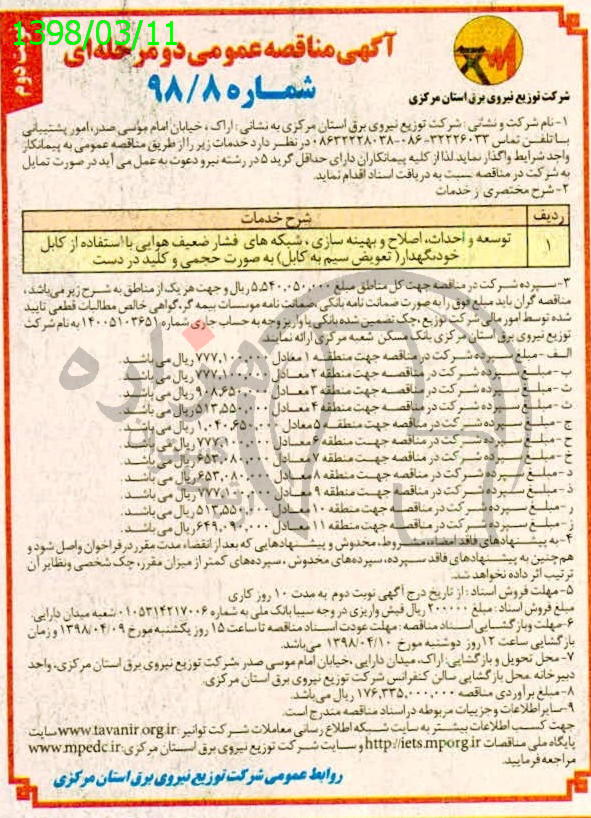 1398/03/11
نوبت دوم
آگهی مناقصه عمومی دو مرحله‌ای
شماره ۹۸/۸
شرکت توزیع نیروی برق استان مرکزی
۱- نام شرکت و نشانی: شرکت توزیع نیروی برق استان مرکزی به نشانی: اراک، خیابان امام موسی صدر، امور پشتیبانی
با تلفن تماس ۳۲۲۲۶۰۳۳-۰۸۶ ۰۸۶۳۲۲۲۸۰۳۸ در نظر دارد خدمات زیر را از طریق مناقصه عمومی به پیمانکار
واجد شرایط واگذار نماید. لذا از کلیه پیمانکاران دارای حداقل گرید ۵ در رشته نیرو دعوت به عمل می آید در صورت تمایل
به شرکت در مناقصه نسبت به دریافت اسناد اقدام نماید.
۲- شرح مختصری از خدمات
ردیف شرح خدمات
۱ توسعه و احداث، اصلاح و بهینه سازی، شبکه های فشار ضعیف هوایی با استفاده از کابل
خودنگهدار( تعویض سیم به کابل) به صورت حجمی و کلید در دست
۳- سپرده شرکت در مناقصه جهت کل مناطق مبلغ ۵،۵۴۰،۰۵۰،۰۰۰ ریال و جهت هر یک از مناطق به شرح زیر می‌باشد،
مناقصه گران باید مبلغ فوق را به صورت ضمانت نامه بانکی، ضمانت نامه موسسات بیمه گر، گواهی خالص مطالبات قطعی تایید
شده توسط امور مالی شرکت توزیع، چک تضمین شده بانکی یا واریز وجه به حساب جاری شماره ۱۴۰۰۵۱۰۳۶۵۱ به نام شرکت
توزیع نیروی برق استان مرکزی بانک مسکن شعبه مرکزی ارائه نمایند.
الف- مبلغ سپرده شرکت در مناقصه جهت منطقه ۱ معادل ۷۷۷،۱۰۰،۰۰۰ ریال می باشد.
ب- مبلغ سپرده شرکت در مناقصه جهت منطقه ۲ معادل ۷۷۷،۱۰۰،۰۰۰ ریال می باشد.
ت- مبلغ سپرده شرکت در مناقصه جهت منطقه ۳ معادل ۹۰۸،۶۵۰،۰۰۰ ریال می باشد.
ث- مبلغ سپرده شرکت در مناقصه جهت منطقه ۴ معادل ۵۱۳،۵۵۰،۰۰۰ ریال می باشد.
ج- مبلغ سپرده شرکت در مناقصه جهت منطقه ۵ معادل ۱،۰۴۰،۶۵۰،۰۰۰ ریال می باشد.
ح- مبلغ سپرده شرکت در مناقصه جهت منطقه ۶ معادل ۷۷۷،۱۰۰،۰۰۰ ریال می باشد.
خ- مبلغ سپرده شرکت در مناقصه جهت منطقه ۷ معادل ۶۵۳،۰۸۰،۰۰۰ ریال می باشد.
د- مبلغ سپرده شرکت در مناقصه جهت منطقه ۸ معادل ۶۵۳،۰۸۰،۰۰۰ ریال می باشد.
ذ- مبلغ سپرده شرکت در مناقصه جهت منطقه ۹ معادل ۷۷۷،۱۰۰،۰۰۰ ریال می باشد.
ر- مبلغ سپرده شرکت در مناقصه جهت منطقه ۱۰ معادل ۵۱۳،۵۵۰،۰۰۰ ریال می باشد.
ز- مبلغ سپرده شرکت در مناقصه جهت منطقه ۱۱ معادل ۶۴۹،۰۹۰،۰۰۰ ریال می باشد.
۴- به پیشنهادهای فاقد امضاء، مشروط، مخدوش و پیشنهادهایی که بعد از انقضاء مدت مقرر در فراخوان واصل شود و
هم‌چنین به پیشنهادهای فاقد سپرده، سپرده‌های مخدوش، سپرده‌های کمتر از میزان مقرر، چک شخصی و نظایر آن
ترتیب اثر داده نخواهد شد.
۵- مهلت فروش اسناد: از تاریخ درج آگهی نوبت دوم به مدت ۱۰ روز کاری
مبلغ فروش اسناد: مبلغ ۲۰۰۰۰۰ ریال فیش واریزی در وجه سیبا بانک ملی به شماره ۰۱۰۵۳۱۴۲۱۷۰۰۶ شعبه میدان دارایی.
۶- مهلت و بازگشایی اسناد مناقصه: مهلت عودت اسناد مناقصه تا ساعت ۱۵ روز یکشنبه مورخ ۱۳۹۸/۰۴/۰۹ و زمان
بازگشایی ساعت ۱۲ روز دوشنبه مورخ ۱۳۹۸/۰۴/۱۰ می‌باشد.
۷- محل تحویل و بازگشایی: اراک، میدان دارایی، خیابان امام موسی صدر، شرکت توزیع نیروی برق استان مرکزی، واحد
دبیرخانه. محل بازگشایی سالن کنفرانس شرکت توزیع نیروی برق استان مرکزی.
۸- مبلغ برآوردی مناقصه ۱۷۶،۳۳۵،۰۰۰،۰۰۰ ریال می‌باشد.
۹- سایر اطلاعات و جزییات مربوطه در اسناد مناقصه مندرج است.
جهت کسب اطلاعات بیشتر به سایت شبکه اطلاع رسانی معاملات شرکت توانیر: www.tavanir.org.ir سایت
پایگاه ملی مناقصات http://iets.mporg.ir و سایت شرکت توزیع نیروی برق استان مرکزی: www.mpedc.ir
مراجعه فرمایید.
روابط عمومی شرکت توزیع نیروی برق استان مرکزی
هزاره